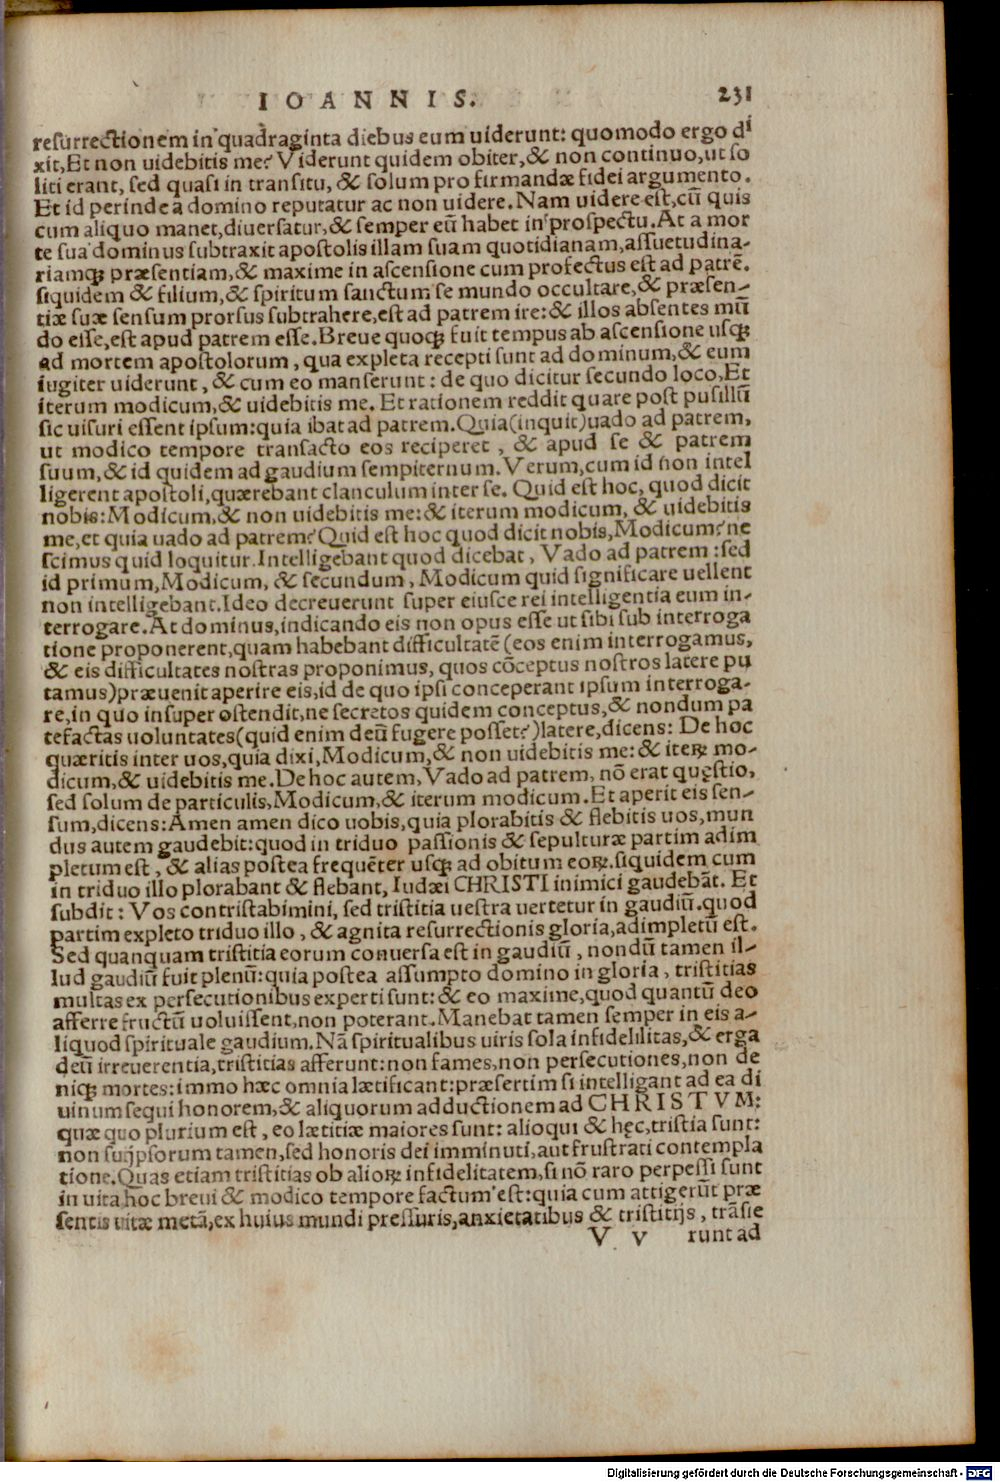 IOANNIS. 231
resurrectionem in quadraginta diebus eum uiderunt: quomodo ergo di
xit, Et non uidebitis me? Viderunt quidem obiter, & non continuo, ut so
liti erant, sed quasi in transitu, & solum pro firmandæ fidei argumento.
Et id perinde a domino reputatur ac non uidere. Nam uidere est, cū quis
cum aliquo manet, diuersatur, & semper eū habet in prospectu. At a mor
te sua dominus subtraxit apostolis illam suam quotidianam, assuetudina-
riamqꝫ præsentiam, & maxime in ascensione cum profectus est ad patrē.
siquidem & filium, & spiritum sanctum se mundo occultare, & præsen-
tiæ suæ sensum prorsus subtrahere, est ad patrem ire: & illos absentes mū
do esse, est apud patrem esse. Breue quoqꝫ fuit tempus ab ascensione usqꝫ
ad mortem apostolorum, qua expleta recepti sunt ad dominum, & eum
iugiter uiderunt, & cum eo manserunt: de quo dicitur secundo loco, Et
iterum modicum, & uidebitis me. Et rationem reddit quare post pusillū
sic uisuri essent ipsum: quia ibat ad patrem. Quia (inquit) uado ad patrem,
ut modico tempore transacto eos reciperet, & apud se & patrem
suum, & id quidem ad gaudium sempiternum. Verum, cum id non intel
ligerent apostoli, quærebant clanculum inter se. Quid est hoc, quod dicit
nobis: Modicum, & non uidebitis me: & iterum modicum, & uidebitis
me, et quia uado ad patrem? Quid est hoc quod dicit nobis, Modicum? ne
scimus quid loquitur. Intelligebant quod dicebat, Vado ad patrem: sed
id primum, Modicum, & secundum, Modicum quid significare uellent
non intelligebant. Ideo decreuerunt super eiusce rei intelligentia eum in-
terrogare. At dominus, indicando eis non opus esse ut sibi sub interroga
tione proponerent, quam habebant difficultatē (eos enim interrogamus,
& eis difficultates nostras proponimus, quos cōceptus nostros latere pu
tamus) præuenit aperire eis, id de quo ipsi conceperant ipsum interroga-
re, in quo insuper ostendit, ne secretos quidem conceptus, & nondum pa
tefactas uoluntates (quid enim deū fugere posset?) latere, dicens: De hoc
quæritis inter uos, quia dixi, Modicum, & non uidebitis me: & iterꝝ mo-
dicum, & uidebitis me. De hoc autem, Vado ad patrem, nō erat quęstio,
sed solum de particulis, Modicum, & iterum modicum. Et aperit eis sen-
sum, dicens: Amen amen dico uobis, quia plorabitis & flebitis uos, mun
dus autem gaudebit: quod in triduo passionis & sepulturæ partim adim
pletum est, & alias postea frequēter usqꝫ ad obitum eoꝝ. siquidem cum
in triduo illo plorabant & flebant, Iudæi CHRISTI inimici gaudebāt. Et
subdit: Vos contristabimini, sed tristitia uestra uertetur in gaudiū. quod
partim expleto triduo illo, & agnita resurrectionis gloria, adimpletū est.
Sed quanquam tristitia eorum conuersa est in gaudiū, nondū tamen il-
lud gaudiū fuit plenū: quia postea assumpto domino in gloria, tristitias
multas ex persecutionibus experti sunt: & eo maxime, quod quantū deo
afferre fructū uoluissent, non poterant. Manebat tamen semper in eis a-
liquod spirituale gaudium. Nā spiritualibus uiris sola infidelilitas, & erga
deū irreuerentia, tristitias afferunt: non fames, non persecutiones, non de
niqꝫ mortes: immo hæc omnia lætificant: præsertim si intelligant ad ea di
uinum sequi honorem, & aliquorum adductionem ad CHRISTVM:
quæ quo plurium est, eo lætitiæ maiores sunt: alioqui & hęc, tristia sunt:
non suijpsorum tamen, sed honoris dei imminuti, aut frustrati contempla
tione. Quas etiam tristitias ob alioꝝ infidelitatem, si nō raro perpessi sunt
in uita hoc breui & modico tempore factum est: quia cum attigerūt præ
sentis uitæ metā, ex huius mundi pressuris, anxietatibus & tristitijs, trāsie
V v runt ad
Digitalisierung gefördert durch die Deutsche Forschungsgemeinschaft - DFG